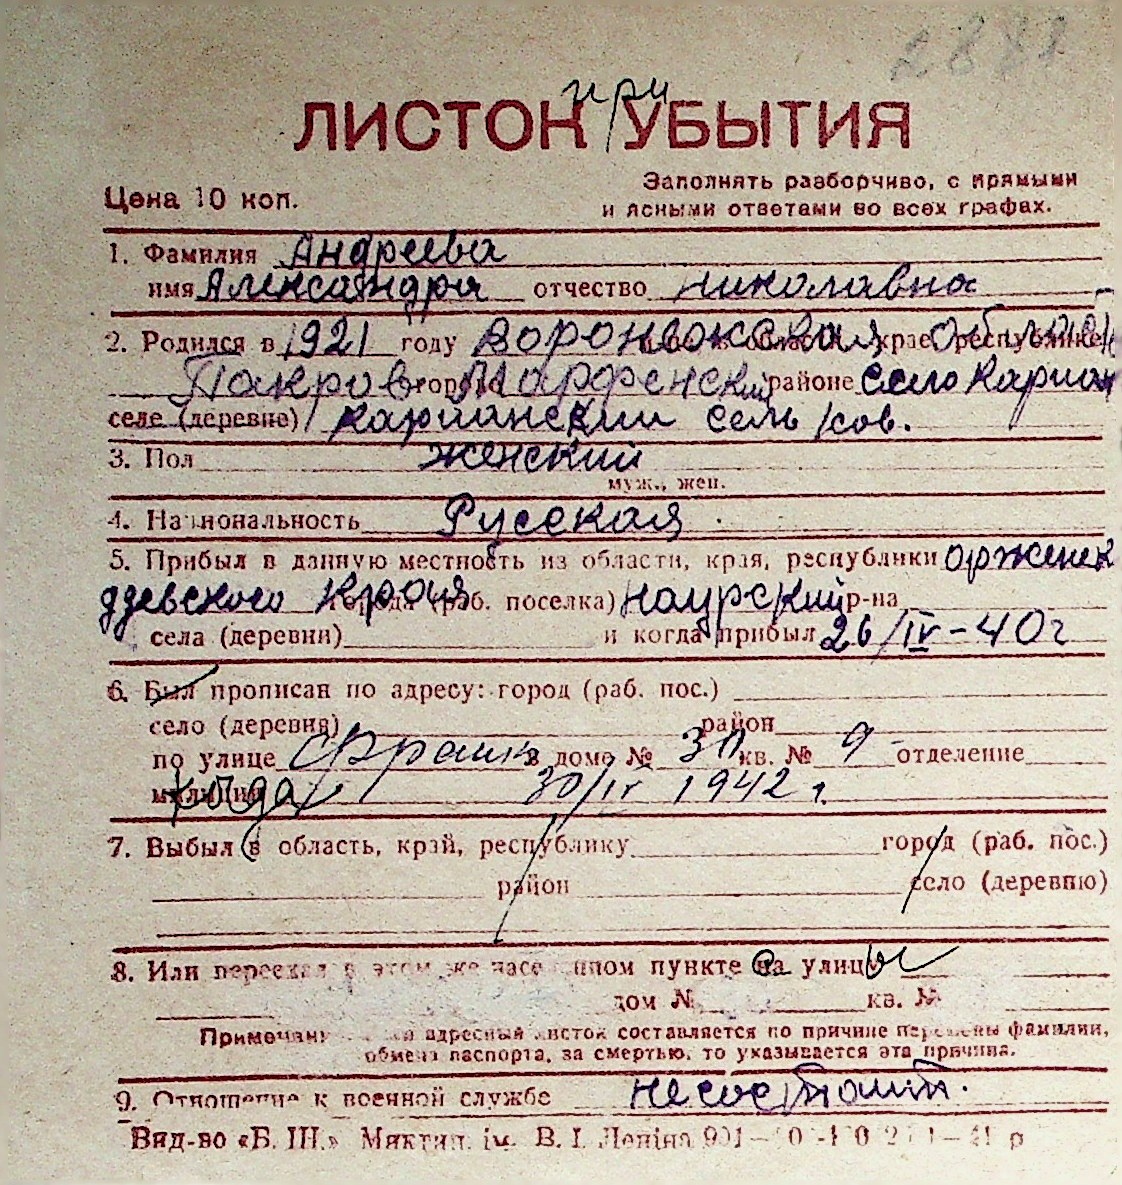 2871
при
ЛИСТОК УБЫТИЯ
Цена 10 коп.
Заполнять разборчиво, с прямыми
и ясными ответами во всех графах.
1. Фамилия Андреева
имя Александра отчество Николавна
2. Родился в 1921 году районе
селе (деревне) карианский сель
3. Пол женский
муж., жен.
4. Национальность Русская
5. Прибыл в данную местность из области, края, республики орженек
ддзевского Края города (раб. поселка) Наурский р-на
села (деревни) и когда прибыл 26/IV-40г
6. Был прописан по адресу: город (раб. пос.)
село (деревня) район
по улице Франко в доме № 30 кв. № 9 отделение
милиции когда 30/IV 1942 г.
7. Выбыл в область, край, республику город (раб. пос.)
район село (деревню)
8. Или переехал в этом же населенном пункте на улицы
дом № кв. №
адресный листок составляется по причине перемены фамилии,
обмена паспорта, за смертью, то указывается эта причина.
9. Отношение к военной службе не состоит.
Вид-во «Б. Ш.» ім. В. І. Леніна